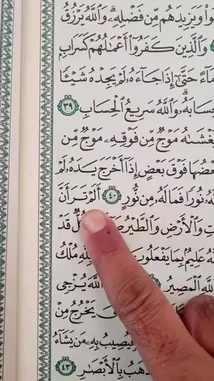 وا۟ وَيَزِيدَهُم مِّن فَضْلِهِۦۗ وَٱللَّهُ يَرْزُقُ
وَٱلَّذِينَ كَفَرُوٓا۟ أَعْمَٰلُهُمْ كَسَرَابٍ
مَآءً حَتَّىٰٓ إِذَا جَآءَهُۥ لَمْ يَجِدْهُ شَيْـًٔا
حِسَابَهُۥۗ وَٱللَّهُ سَرِيعُ ٱلْحِسَابِ ٣٩
يَغْشَىٰهُ مَوْجٌ مِّن فَوْقِهِۦ مَوْجٌ مِّن
بَعْضُهَا فَوْقَ بَعْضٍ إِذَآ أَخْرَجَ يَدَهُۥ لَمْ
لَهُۥ نُورًا فَمَا لَهُۥ مِن نُّورٍ ٤٠ أَلَمْ تَرَ أَنَّ
وَٱلْأَرْضِ وَٱلطَّيْرُ قَدْ
عَلِيمٌۢ بِمَا يَفْعَلُونَ مُلْكُ
ٱلْمَصِيرُ ٱللَّهَ يُزْجِى
يَخْرُجُ مِنْ
فَيُصِيبُ بِهِۦ مَن يَشَآءُ
يَذْهَبُ بِٱلْأَبْصَٰرِ ٤٣